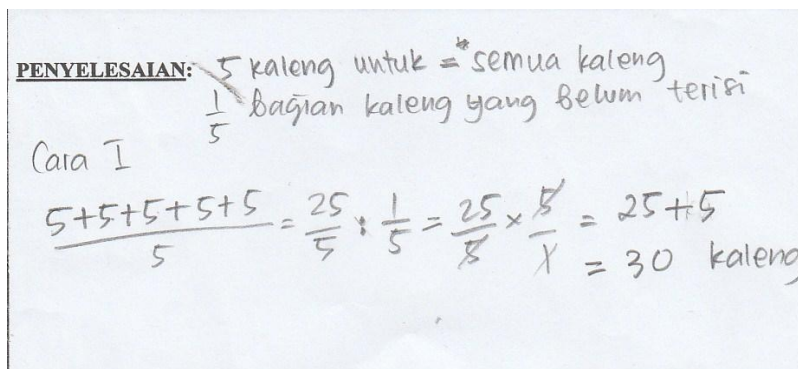 PENYELESAIAN: 5 kaleng untuk = semua kaleng
1/5 bagian kaleng yang belum terisi
Cara I
5+5+5+5+5/5 = 25/5 : 1/5 = 25/5 × 5/1 = 25+5
= 30 kaleng